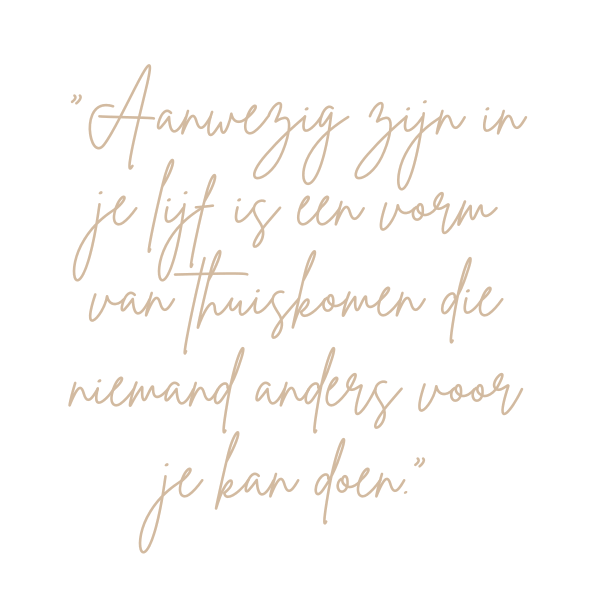 "Aanwezig zijn in
je lijf is een vorm
van thuiskomen die
niemand anders voor
je kan doen."